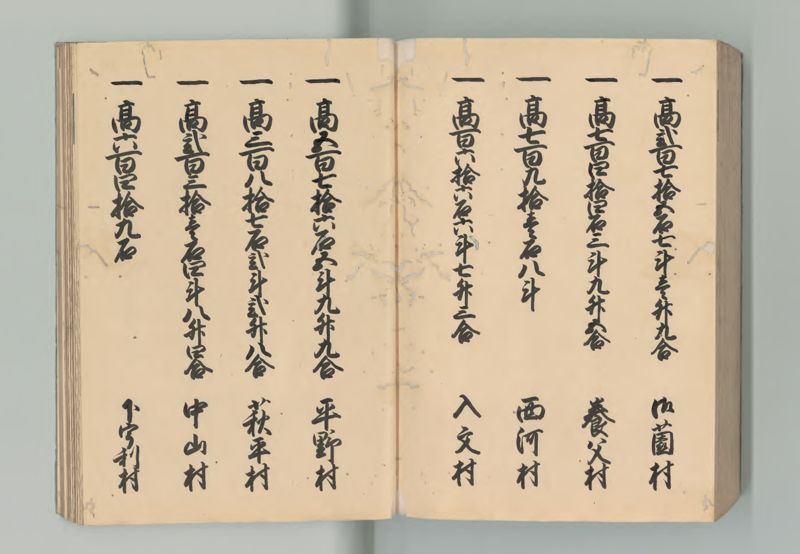 一 髙弐百七拾五石七斗壱升九合 御薗村
一 髙七百四拾四石三斗九升五合 養父村
一 髙七百九拾壱石八斗 西河村
一 髙百六拾六石六斗七升三合 入文村
一 髙五百七拾六石五斗九升九合 平野村
一 髙三百八拾七石弐斗弐升八合 萩平村
一 髙弐百三拾壱石四斗八升四合 中山村
一 髙六百四拾九石 下宇利村